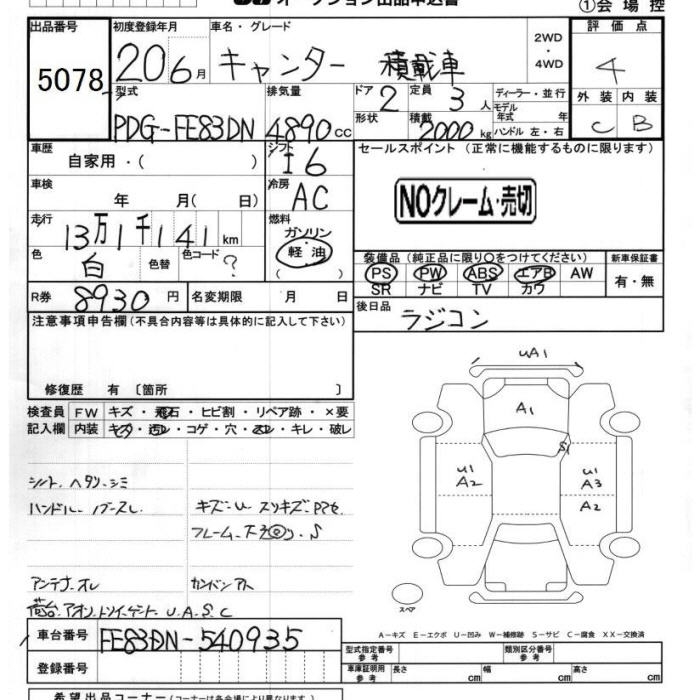 オークション出品申込書
①会場控
出品番号
5078
初度登録年月
20 6月
車名・グレード
キャンター 積載車
2WD・4WD
評価点
4
外装 内装
C B
型式
PDG-FE83DN
排気量
4890cc
ドア
2
定員
3人
ディーラー・並行
モデル年式 年
形状
積載
2000kg
ハンドル 左・右
車歴
自家用・( )
シフト
I6
セールスポイント (正常に機能するものに限ります)
NOクレーム・売切
車検
年 月( 日)
冷房
AC
走行
13万1千141km
燃料
ガソリン
軽油
色
白
色替
色コード
?
装備品 (純正品に限り○をつけてください)
新車保証書
PS PW ABS エアB AW
有・無
SR ナビ TV カワ
R券
8930円
名変期限 月 日
後日品
ラジコン
注意事項申告欄(不具合内容等は具体的に記入して下さい)
修復歴 有〔箇所 〕
検査員記入欄
FW キズ・飛石・ヒビ割・リペア跡・×要
内装 キズ・汚れ・コゲ・穴・スレ・キレ・破レ
シート.ヘタリ.シミ
ハンドル.
キズ-U スリキズ.
フレーム.下
アンテナ.オレ
カンバンアト
荷台.アオリ. U.A.S.C
UA1
A1
S1
U1
A2
U1
A3
A2
スペア
A-キズ E-エクボ U-凹み W-補修跡 S-サビ C-腐食 XX-交換済
車台番号
FE83DN-540935
登録番号
型式指定番号 参考
類別区分番号 参考
車庫証明用 参考
長さ cm 幅 cm 高さ cm
希望出品コーナー(コーナーは各会場により異なります。)